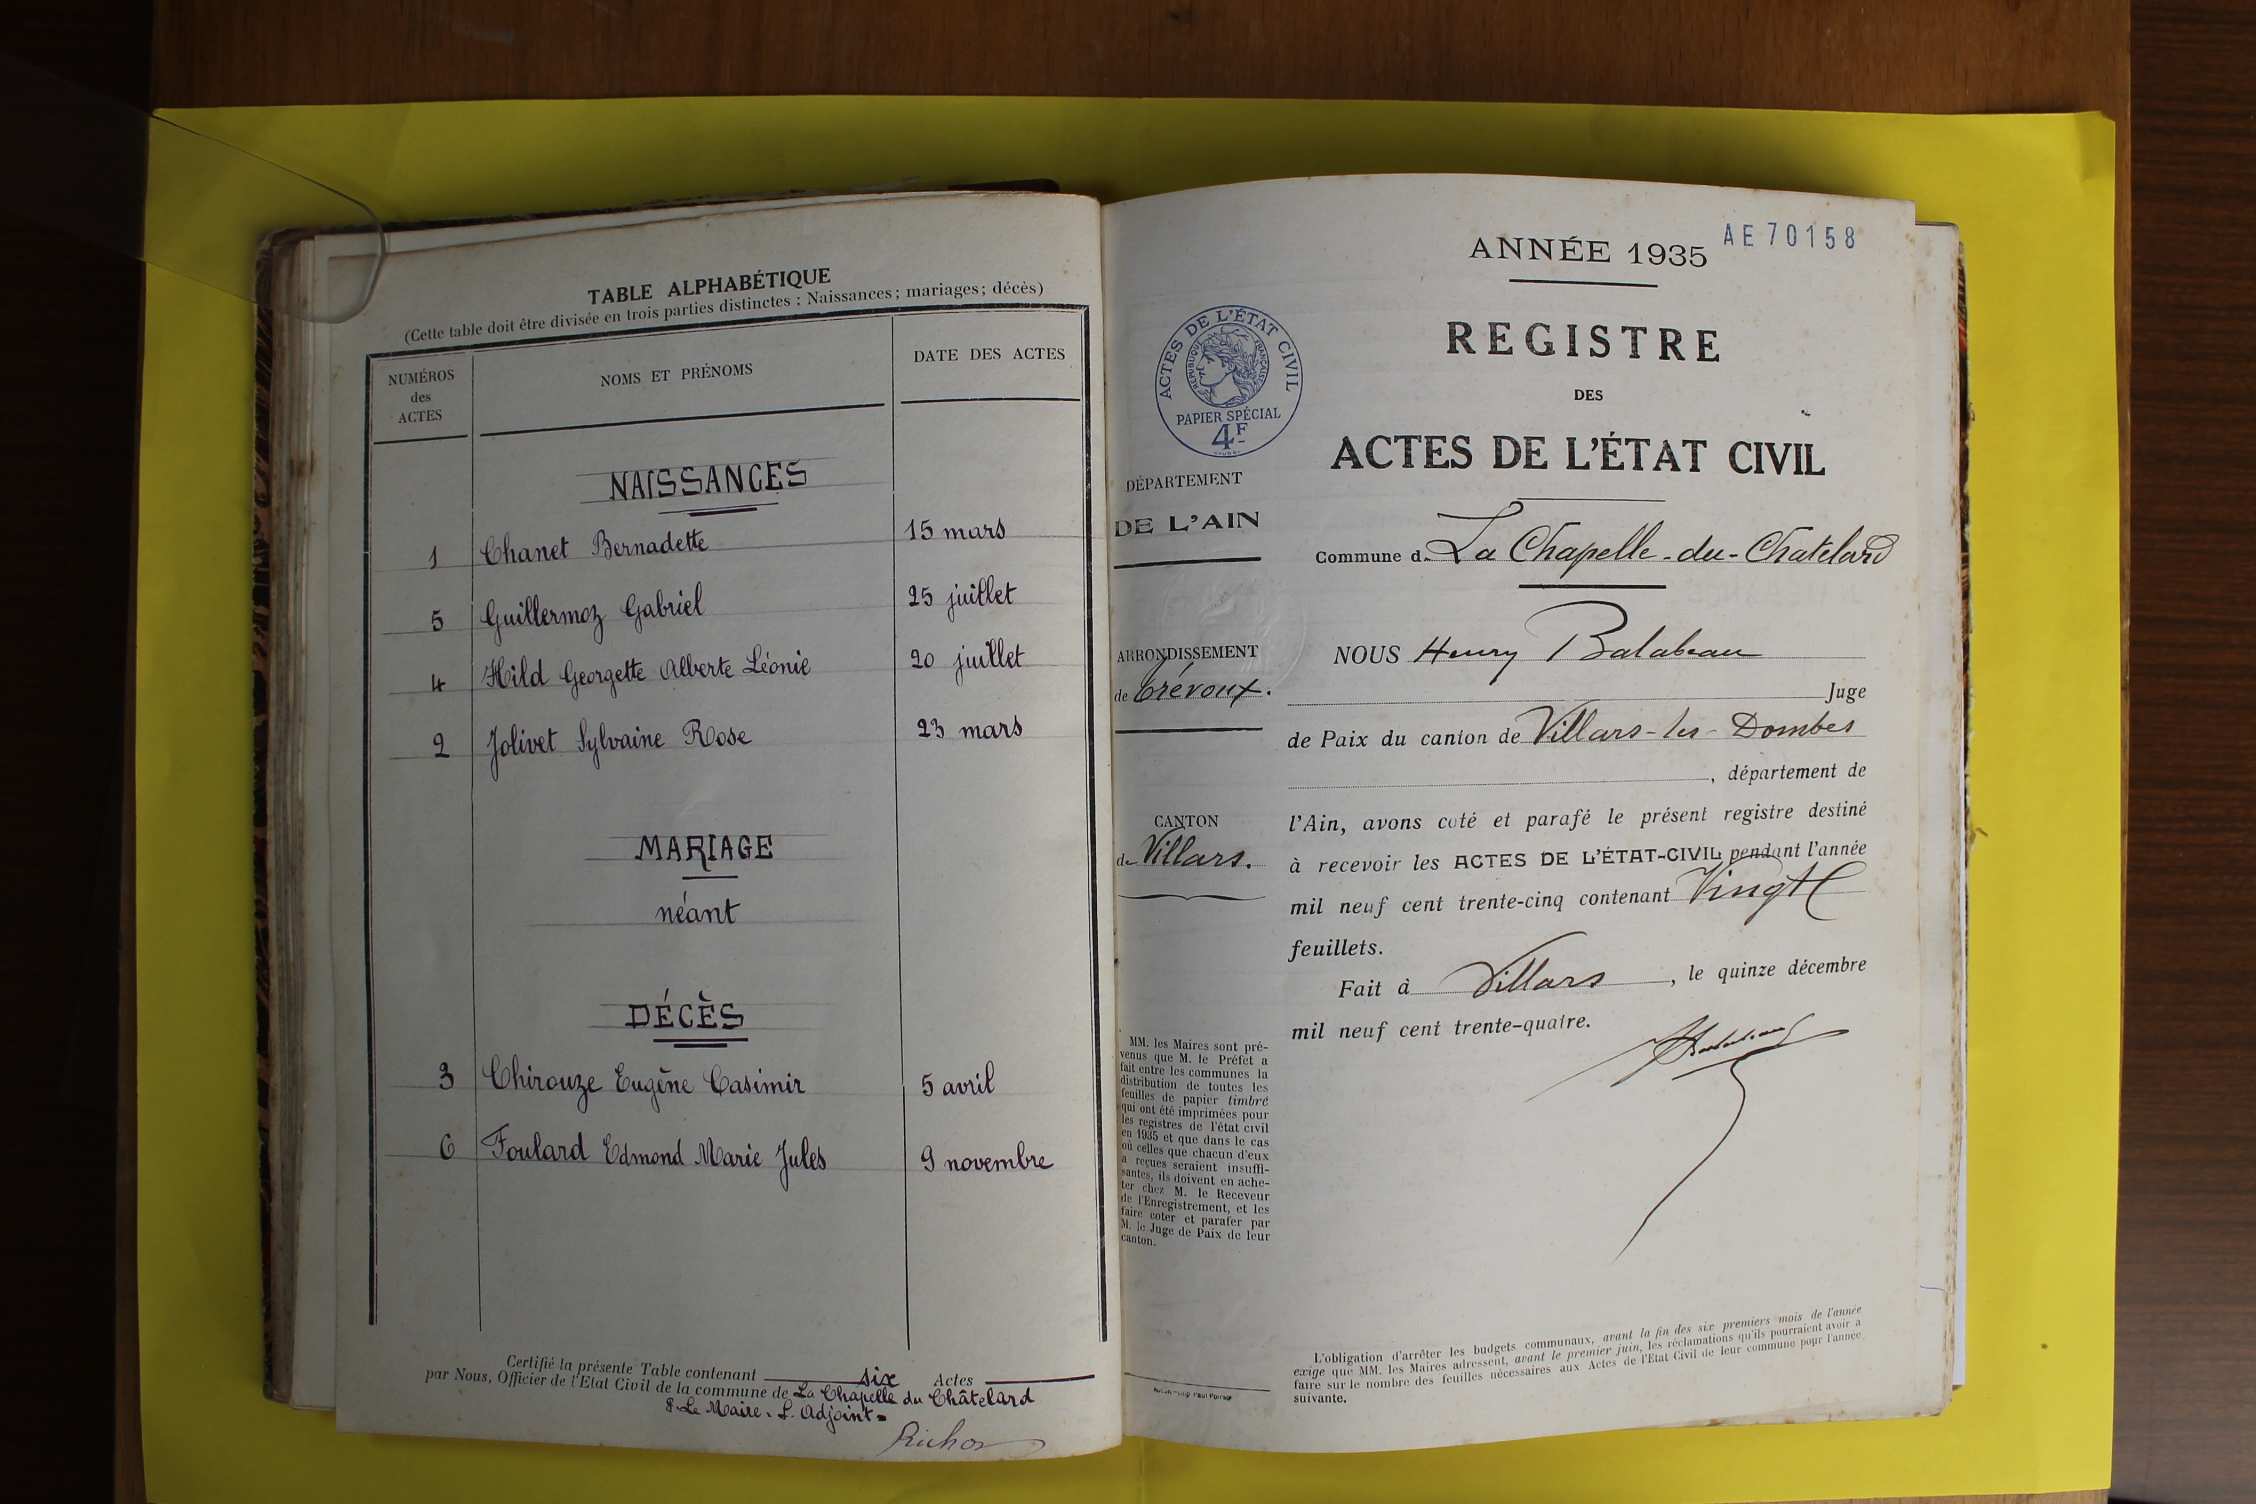 TABLE ALPHABÉTIQUE
(Cette table doit être divisée en trois parties distinctes : Naissances ; mariages ; décès)
NUMÉROS
des
ACTES
NOMS ET PRÉNOMS
DATE DES ACTES
NAISSANCES
1 Chanet Bernadette 15 mars
5 Guillermoz Gabriel 25 juillet
4 Hild Georgette Alberte Léonie 20 juillet
2 Jolivet Sylvaine Rose 23 mars
MARIAGE
néant
DÉCÈS
3 Chirouze Eugène Casimir 5 avril
6 Foulard Edmond Marie Jules 9 novembre
Certifié la présente Table contenant six Actes
par Nous, Officier de l'Etat Civil de la commune de La Chapelle du Châtelard
P. Le Maire. L'Adjoint
ANNÉE 1935
AE 70158
REGISTRE
DES
ACTES DE L'ÉTAT CIVIL
ACTES DE L'ÉTAT CIVIL
RÉPUBLIQUE FRANÇAISE
PAPIER SPÉCIAL
4F
DÉPARTEMENT
DE L'AIN
ARRONDISSEMENT
de Trévoux.
CANTON
de Villars.
MM. les Maires sont pré-
venus que M. le Préfet a
fait entre les communes la
distribution de toutes les
feuilles de papier timbré
qui ont été imprimées pour
les registres de l'état civil
en 1935 et que dans le cas
où celles que chacun d'eux
a reçues seraient insuffi-
santes, ils doivent en ache-
ter chez M. le Receveur
de l'Enregistrement, et les
faire coter et parafer par
M. le Juge de Paix de leur
canton.
Commune d La Chapelle-du-Chatelard
NOUS Henry Balabeau
Juge
de Paix du canton de Villars-les-Dombes
, département de
l'Ain, avons coté et parafé le présent registre destiné
à recevoir les ACTES DE L'ÉTAT-CIVIL pendant l'année
mil neuf cent trente-cinq contenant Vingt
feuillets.
Fait à Villars, le quinze décembre
mil neuf cent trente-quatre.
L'obligation d'arrêter les budgets communaux, avant la fin des six premiers mois de l'année
exige que MM. les Maires adressent, avant le premier juin, les réclamations qu'ils pourraient avoir à
faire sur le nombre des feuilles nécessaires aux Actes de l'Etat Civil de leur commune pour l'année
suivante.